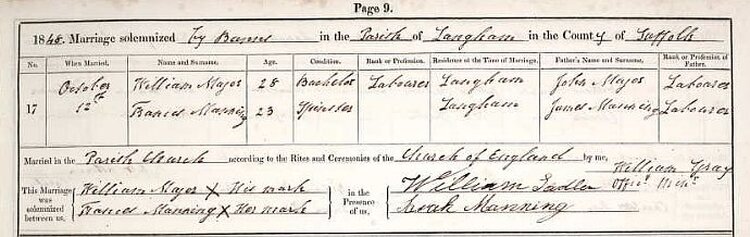 Page 9.
1848. Marriage solemnized by Banns in the Parish of Langham in the County of Suffolk
No. When Married. Name and Surname. Age. Condition. Rank or Profession. Residence at the Time of Marriage. Father's Name and Surname. Rank or Profession of Father.
17 October 12th William Major 28 Bachelor Labourer Langham John Major Labourer
Frances Manning 23 Spinster Langham James Manning Labourer
Married in the Parish Church according to the Rites and Ceremonies of the Church of England by me, William Gray
Offic. Minr.
This Marriage was solemnized between us, William Major X His mark in the Presence of us, William Sadler
Frances Manning X Her mark Noah Manning